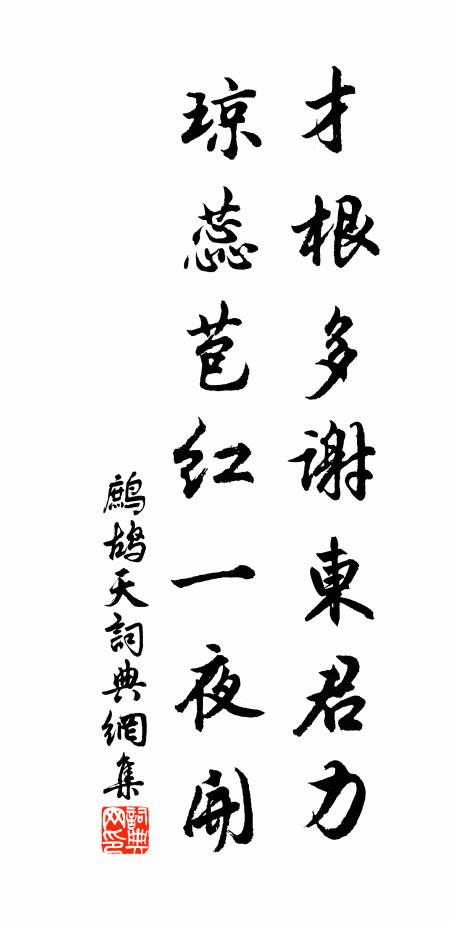 才根多謝東君力
琼蕊苞红一夜開
鷓鴣天詞典網集
詞典网印